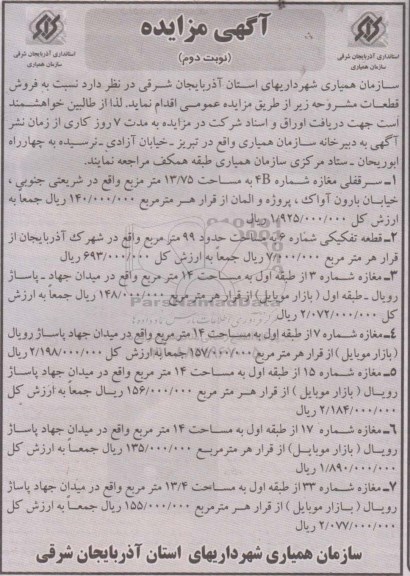 آگهی مزایده
(نوبت دوم)
استانداری آذربایجان شرقی
سازمان همیاری
استانداری آذربایجان شرقی
سازمان همیاری
سازمان همیاری شهرداریهای استان آذربایجان شرقی در نظر دارد نسبت به فروش
قطعات مشروحه زیر از طریق مزایده عمومی اقدام نماید. لذا از طالبین خواهشمند
است جهت دریافت اوراق و اسناد شرکت در مزایده به مدت ۷ روز کاری از زمان نشر
آگهی به دبیرخانه سازمان همیاری واقع در تبریز ـ خیابان آزادی ـ نرسیده به چهارراه
ابوریحان ـ ستاد مرکزی سازمان همیاری طبقه همکف مراجعه نمایند.
۱ـ سرقفلی مغازه شماره ۴B به مساحت ۱۳/۷۵ متر مربع واقع در شریعتی جنوبی،
خیابان بارون آواک، پروژه و المان از قرار هر مترمربع ۱۴۰/۰۰۰/۰۰۰ ریال جمعاً به
ارزش کل ۱/۹۲۵/۰۰۰/۰۰۰ ریال
۲ـ قطعه تفکیکی شماره ۶ به مساحت حدود ۹۹ متر مربع واقع در شهرک آذربایجان از
قرار هر متر مربع ۷/۰۰۰/۰۰۰ ریال جمعاً به ارزش کل ۶۹۳/۰۰۰/۰۰۰ ریال
۳ـ مغازه شماره ۳ از طبقه اول به مساحت ۱۴ متر مربع واقع در میدان جهاد ـ پاساژ
رویال ـ طبقه اول (بازار موبایل) از قرار هر متر مربع ۱۴۸/۰۰۰/۰۰۰ ریال جمعاً به ارزش
کل ۲/۰۷۲/۰۰۰/۰۰۰ ریال
۴ـ مغازه شماره ۷ از طبقه اول به مساحت ۱۴ متر مربع واقع در میدان جهاد پاساژ رویال
(بازار موبایل) از قرار هر متر مربع ۱۵۷/۰۰۰/۰۰۰ جمعاً به ارزش کل ۲/۱۹۸/۰۰۰/۰۰۰ ریال
۵ـ مغازه شماره ۱۵ از طبقه اول به مساحت ۱۴ متر مربع واقع در میدان جهاد پاساژ
رویال (بازار موبایل) از قرار هر متر مربع ۱۵۶/۰۰۰/۰۰۰ ریال جمعاً به ارزش کل
۲/۱۸۴/۰۰۰/۰۰۰ ریال
۶ـ مغازه شماره ۱۷ از طبقه اول به مساحت ۱۴ متر مربع واقع در میدان جهاد پاساژ
رویال (بازار موبایل) از قرار هر مترمربع ۱۳۵/۰۰۰/۰۰۰ ریال جمعاً به ارزش کل
۱/۸۹۰/۰۰۰/۰۰۰ ریال
۷ـ مغازه شماره ۳۳ از طبقه اول به مساحت ۱۳/۴ متر مربع واقع در میدان جهاد پاساژ
رویال (بازار موبایل) از قرار هر مترمربع ۱۵۵/۰۰۰/۰۰۰ ریال جمعاً به ارزش کل
۲/۰۷۷/۰۰۰/۰۰۰ ریال
سازمان همیاری شهرداریهای استان آذربایجان شرقی